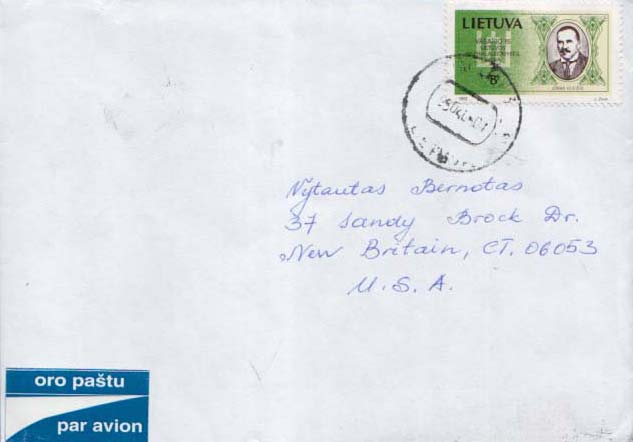 LIETUVA
Vytautas Bernotas
37 Sandy Brock Dr.
New Britain, CT. 06053
U. S. A.
oro paštu
par avion